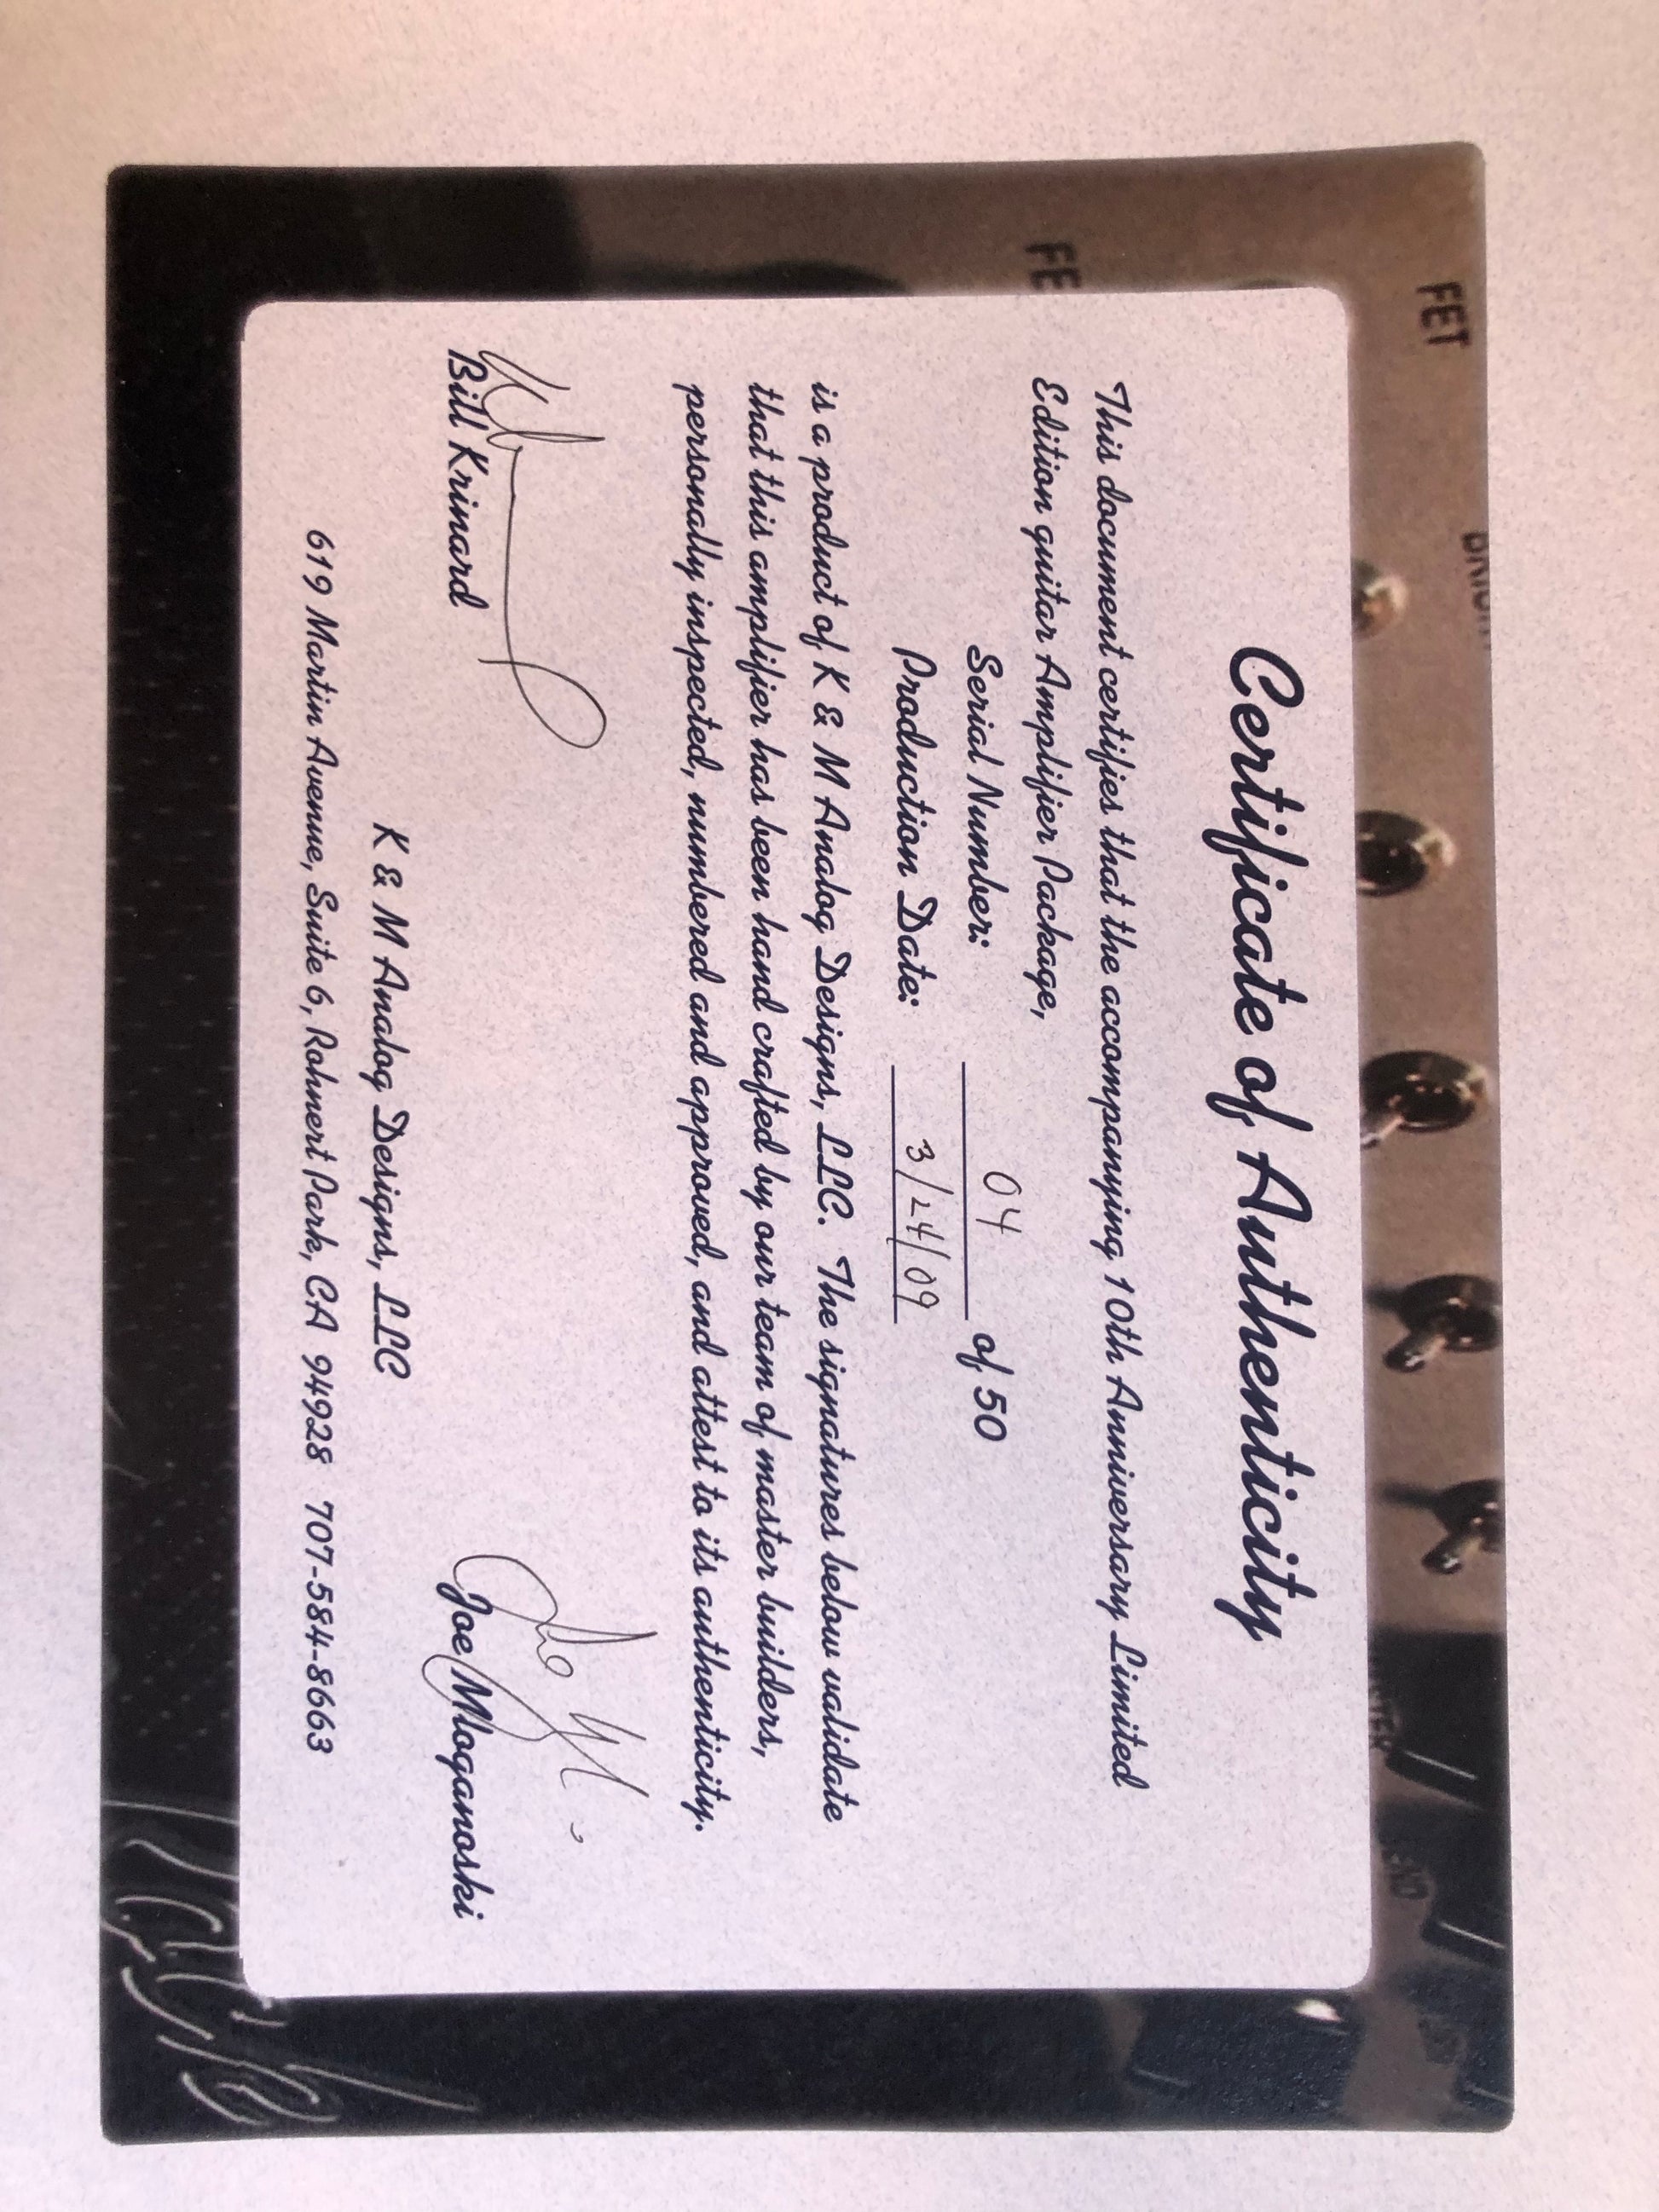 FET
FE
Certificate of Authenticity
This document certifies that the accompanying 10th Anniversary Limited
Edition guitar Amplifier Package,
Serial Number: 04 of 50
Production Date: 3/24/09
is a product of K & M Analog Designs, LLC. The signatures below validate
that this amplifier has been hand crafted by our team of master builders,
personally inspected, numbered and approved, and attest to its authenticity.
Bill Krinard Joe Moganoski
K & M Analog Designs, LLC
619 Martin Avenue, Suite 6, Rohnert Park, CA 94928 707-584-8663